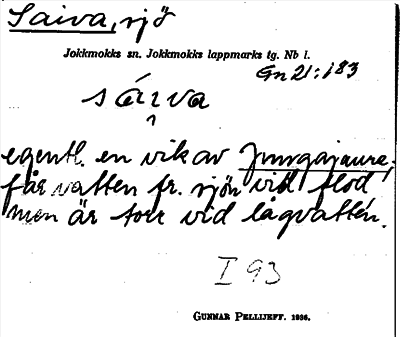 Saiva, sjö
Jokkmokks sn. Jokkmokks lappmarks tg. Nb l.
Gn 21:183
sáiva
egentl. en vik av Jnrgajaure,
får vatten fr. sjön vid flod
men är torr vid lågvatten.
I 93
GUNNAR PELLIJEFF. 1936.